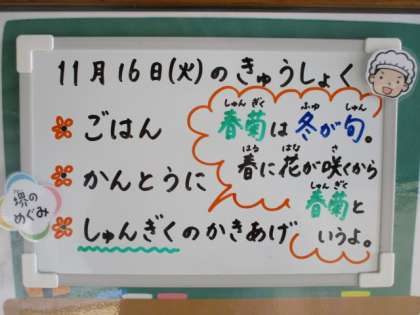 11月16日(火)のきゅうしょく
ごはん
かんとうに
しゅんぎくのかきあげ
春菊は冬が旬。
しゅん ぎく ふゆ しゅん
春に花が咲くから
はる はな さ
春菊と
しゅん ぎく
いうよ。
堺の
めぐみ